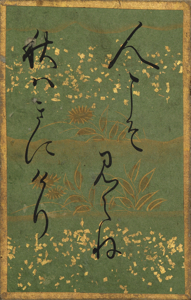 人こそ見えね
秋はきにけり